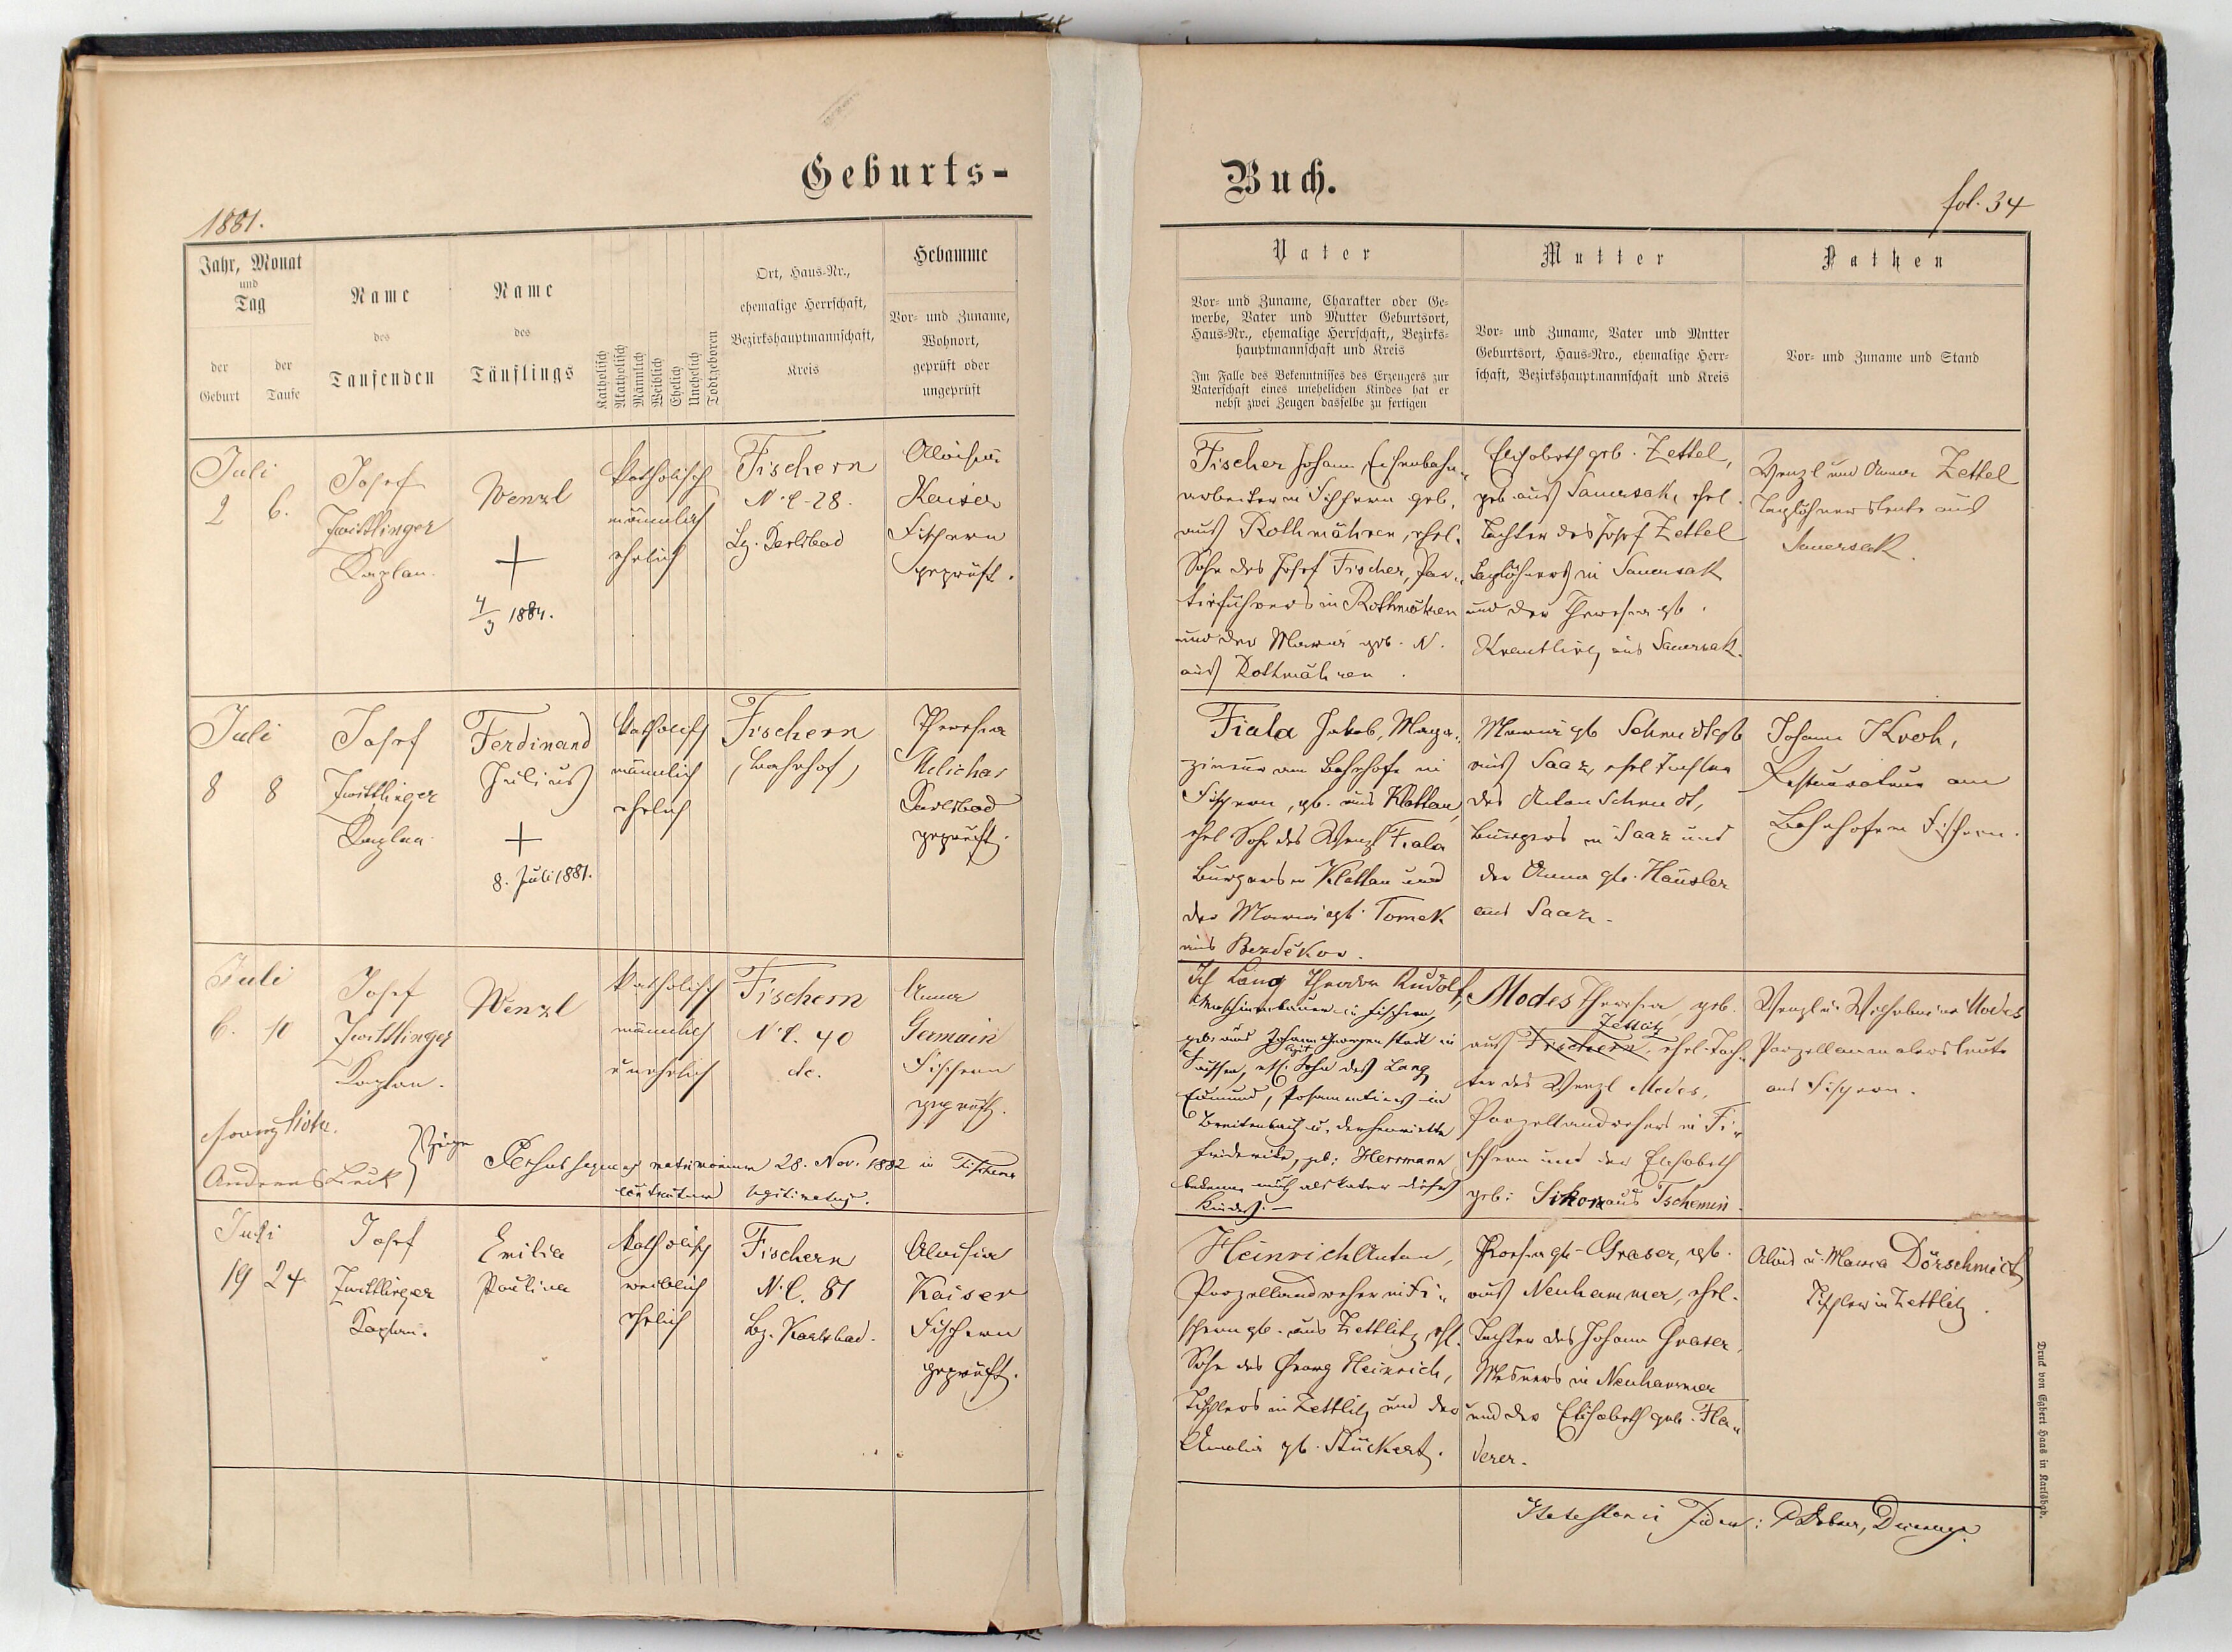 Geburts-
1881.
Jahr, Monat
und
Tag
der
Geburt
der
Taufe
Name
des
Taufenden
Name
des
Täuflings
Katholisch
Akatholisch
Männlich
Weiblich
Ehelich
Unehelich
Todtgeboren
Ort, Haus-Nr.,
ehemalige Herrschaft,
Bezirkshauptmannschaft,
Kreis
Hebamme
Vor- und Zuname,
Wohnort,
geprüft oder
ungeprüft
Juli
2 6.
Josef
Zwittlinger
Kaplan.
Wenzl
+
4/3 1884.
katholisch
männlich
ehelich
Fischern
N. C. 28.
Bz. Karlsbad
Aloisia
Kaiser
Fischern
geprüft.
Juli
8 8
Josef
Zwittlinger
Kaplan
Ferdinand
Julius
+
8. Juli 1881.
katholisch
männlich
ehelich
Fischern
(Bahnhof)
Theresia
Melichar
Karlsbad
geprüft.
Juli
6. 10
Josef
Zwittlinger
Kaplan.
Wenzl
katholisch
männlich
unehelich
Fischern
N. C. 40
dc.
Anna
Germain
Fischern
geprüft.
Zeugen
Andreas
matrimonium 28. Nov. 1882 in Fischern
legitimatus.
Juli
19 24
Josef
Zwittlinger
Kaplan.
Emilia
Paulina
katholisch
weiblich
ehelich
Fischern
N. C. 81
Bz. Karlsbad.
Aloisia
Kaiser
Fischern
geprüft.
Buch.
fol. 34
Vater
Vor- und Zuname, Charakter oder Ge-
werbe, Vater und Mutter Geburtsort,
Haus-Nr., ehemalige Herrschaft,, Bezirks-
hauptmannschaft und Kreis
Im Falle des Bekenntnisses des Erzeugers zur
Vaterschaft eines unehelichen Kindes hat er
nebst zwei Zeugen dasselbe zu fertigen
Mutter
Vor- und Zuname, Vater und Mntter
Geburtsort, Haus-Nro., ehemalige Herr-
schaft, Bezirkshauptmannschaft und Kreis
Pathen
Vor- und Zuname und Stand
Fischer Johann, Eisenbahn-
arbeiter in Fischern geb.
aus Rothmähren, ehel.
Sohn des Josef Fischer,
in Rothmähren
und der Maria geb. N.
aus Rothmähren.
Elisabeth geb. Zettel,
geb. aus Sauersak, ehel.
Tochter des Josef Zettel
Taglöhners in Sauersak
und der Theresia geb.
aus Sauersak.
Wenzl und Anna Zettel
Taglöhnersleute aus
Sauersak.
Fiala Jakob, Maga-
zineur am Bahnhofe in
Fischern, geb. aus Klattau,
ehel. Sohn des Wenzl Fiala
Bürgers in Klattau und
der Maria geb. Tomek
aus Bezdĕkov.
Maria geb. Schmidt geb.
aus Saaz, ehel. Tochter
des Anton Schmidt,
Bürgers in Saaz und
der Anna geb. Häusler
aus Saaz.
Johann Kroh,
Restaurateur am
Bahnhofe in Fischern.
Ich Lang Theodor Rudolf,
Maschinenbauer in Fischern,
geb. aus Johanngeorgenstadt in
Sachsen, ehel. Sohn des Lang
Edmund, Posamentiers in
Breitenbach u. der Henriette
Friderike, geb. Herrmann
bekenne mich als Vater dieses
Kindes.—
Modes Theresia, geb.
Zettlitz
aus Fischern, ehel. Toch-
ter des Wenzl Modes,
Porzellandrehers in Fi-
schern und der Elisabeth
geb. Sikora aus Tschemin.
Wenzl u. Wilhelmine Modes
Porzellanmalersleute
aus Fischern.
Heinrich Anton,
Porzellandreher in Fi-
schern geb. aus Zettlitz, ehl.
Sohn des Georg Heinrich,
Tischlers in Zettlitz und der
Amalia geb. Stückert.
geb. Graser, geb.
aus Neuhammer, ehel.
Tochter des Johann Graser,
in Neuhammer
und der Elisabeth geb. Fla-
derer.
Alois u. Maria Dörschmidt
Tischler in Zettlitz.
Druck von Egbert Haas in Karlsbad.